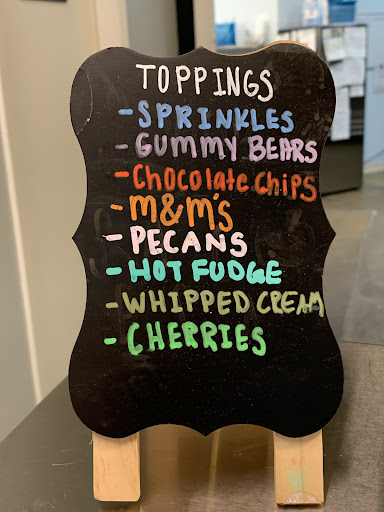 TOPPINGS
- SPRINKLES
- GUMMY BEARS
- Chocolate Chips
- M&M's
- PECANS
- HOT FUDGE
- WHIPPED CREAM
- CHERRIES